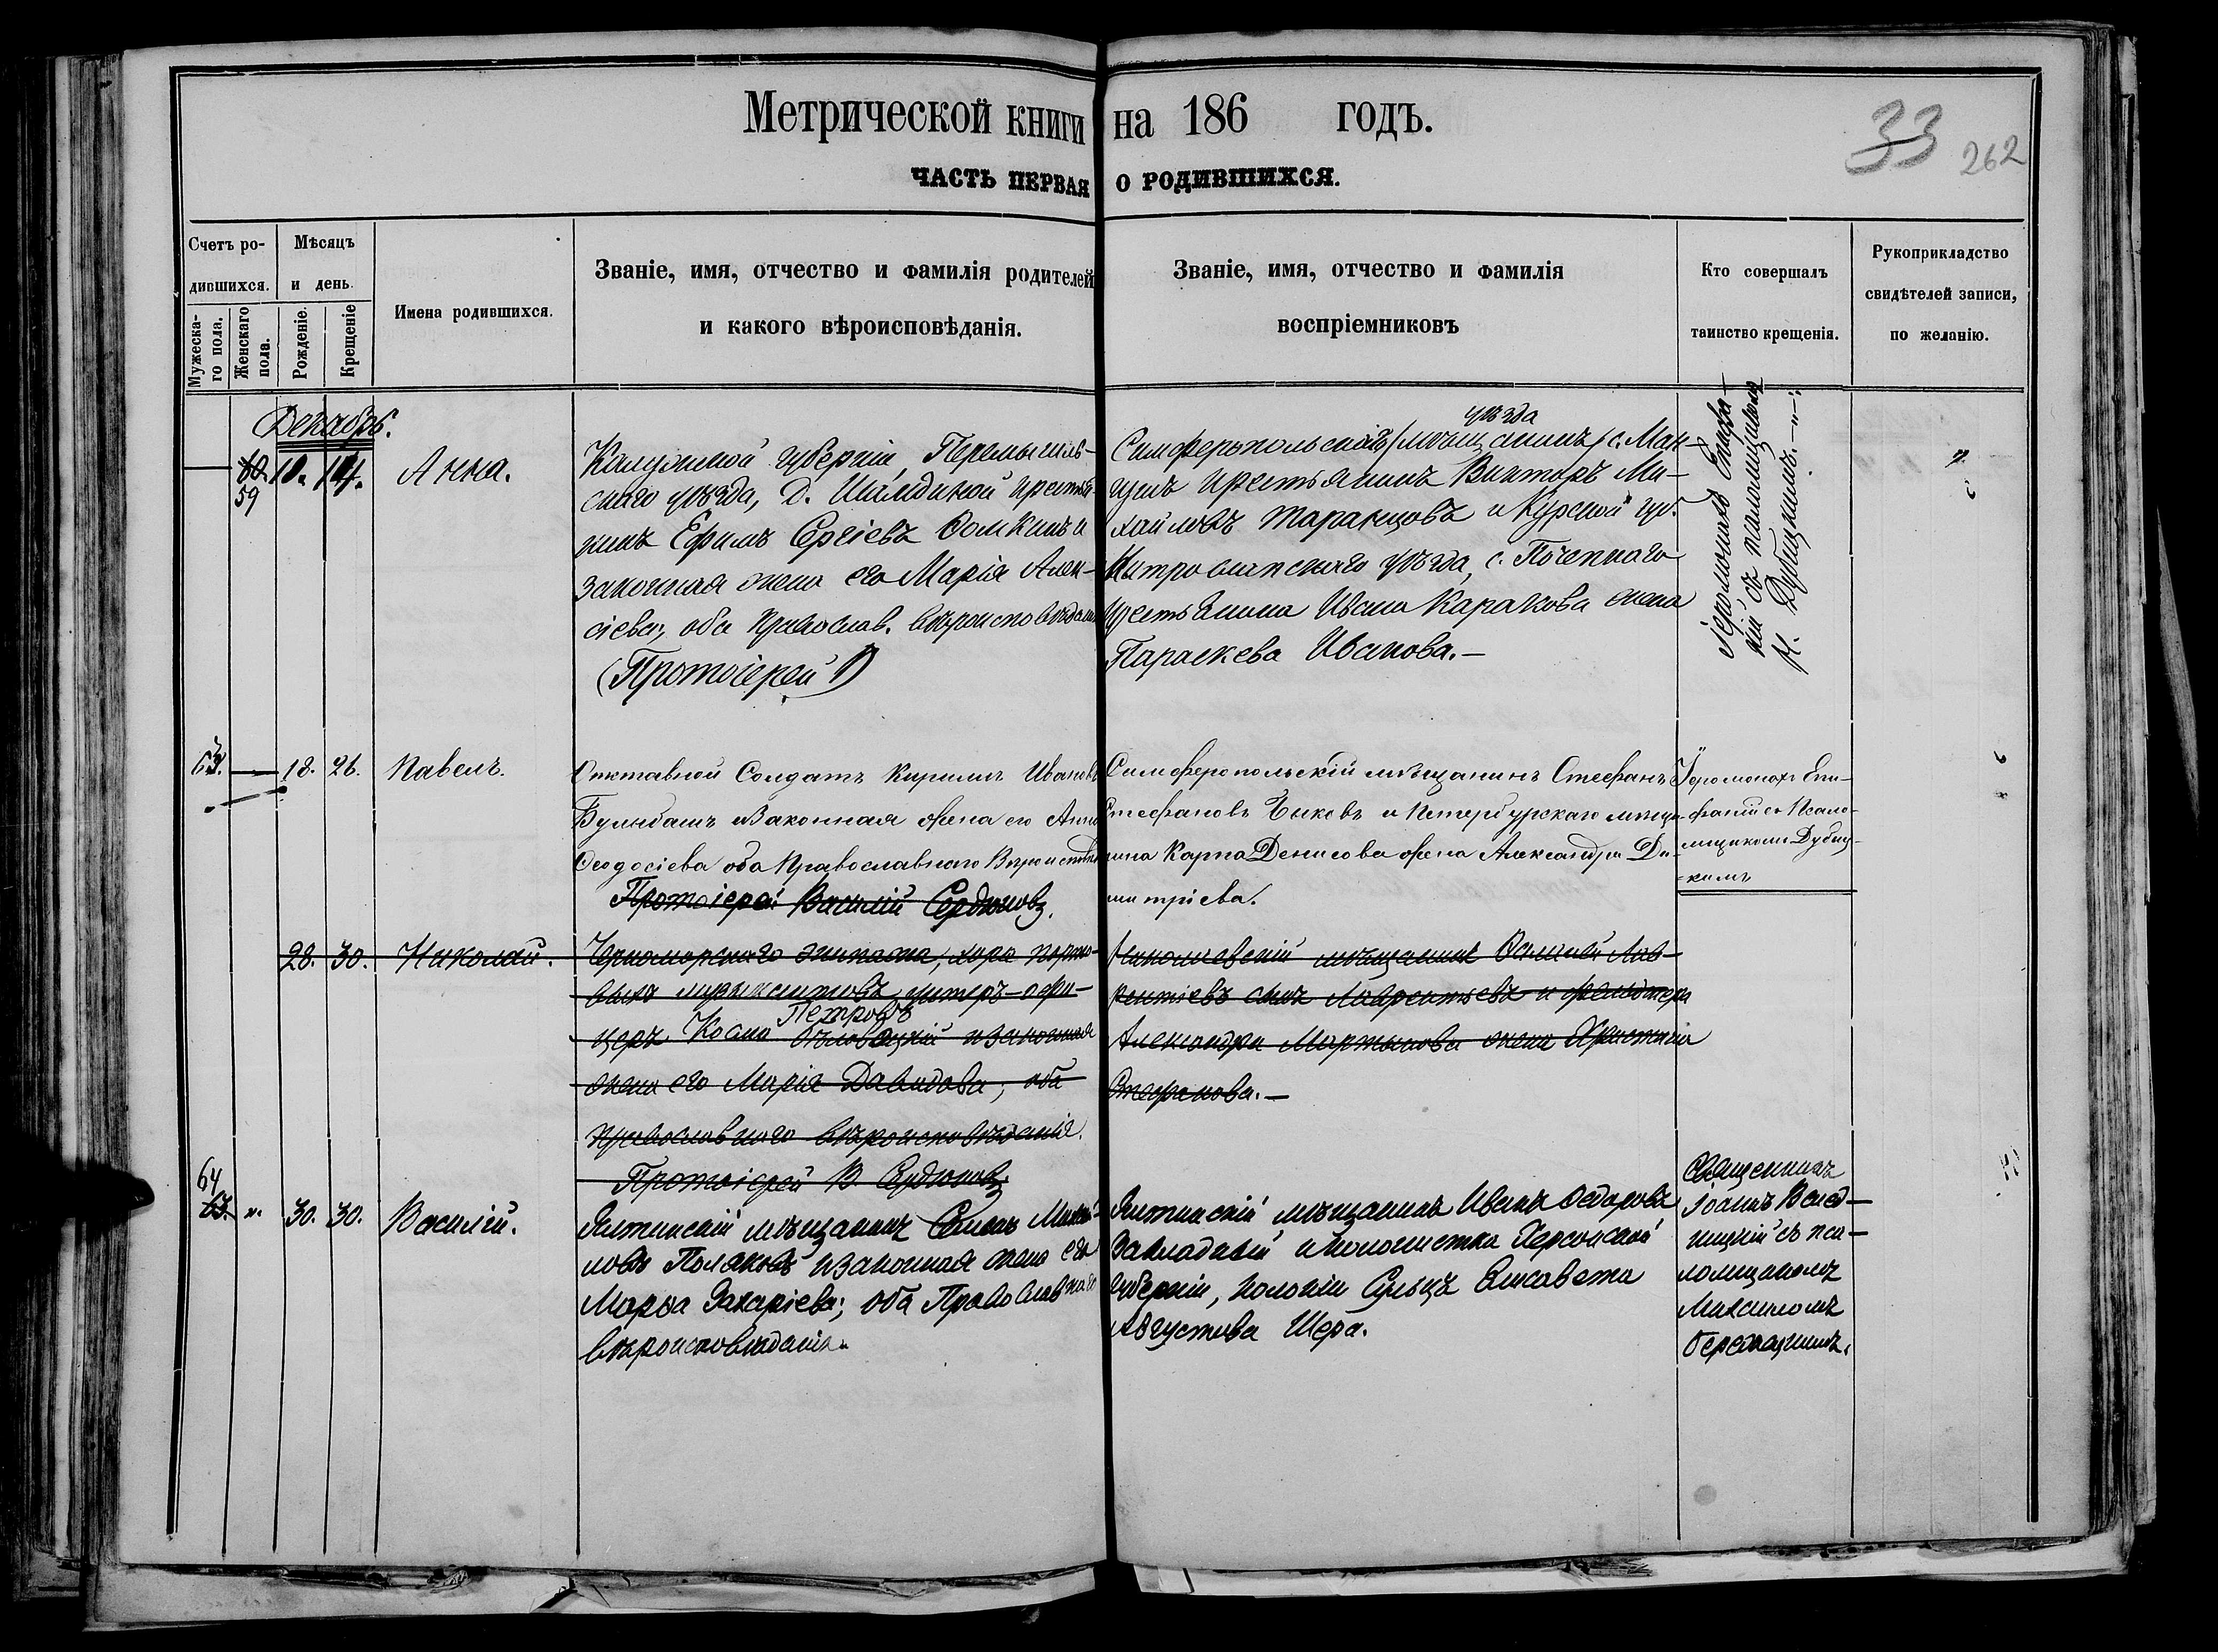 Метрической книги на 186 годъ.
33 262
ЧАСТЬ ПЕРВАЯ О РОДИВШИХСЯ.
Счетъ ро-
дившихся.
Мужеска-
го пола.
Женскаго
пола.
Мѣсяцъ
и день.
Рожденіе.
Крещеніе
Имена родившихся.
Званіе, имя, отчество и фамилія родителей
и какого вѣроисповѣданія.
Званіе, имя, отчество и фамилія
воспріемниковъ
Кто совершалъ
таинство крещенія.
Рукоприкладство
свидѣтелей записи,
по желанію.
Декабрь.
60. 10. 14. Анна.
59
Калужской губерніи, Перемышль-
скаго уѣзда, д. крестья-
нинъ Ефимъ Сергіевъ и
законная жена его Марія Алек-
сіева; оба православ. вѣроисповѣданія
(Протоіерей)
уѣзда
Симферопольскій (мѣщанинъ) с. Ман-
гушъ крестьянинъ Викторъ Ми-
хайловъ Таранцовъ и Курской губ.
уѣзда, с. Поченнаго
крестьянина Ивана Каракова жена
Параскева Иванова.—
Іеромонахъ Епифа-
ній съ псаломщикомъ
Н. Дубицкимъ.
63. — 18. 26. Павелъ.
Отставной Солдатъ Кирилъ Ивановъ
и Законная жена его Анна
Ѳеодосіева оба Православнаго Вѣроисповѣд
Протоіерей Василій Сердюковъ.
Симферопольскій мѣщанинъ Стефанъ
Стефановъ Быковъ и Петербурскаго мѣща-
нина Карпа Денисова жена Александра Ди-
митріева.
Іеромонахъ Епи-
фаній съ Псало-
мщикомъ Дубиц-
кимъ
28. 30. Николай.
Черноморскаго экипажа, хора порто-
выхъ музыкантовъ унтеръ-офи-
Петровъ
церъ Косма и законная
жена его Марія Давидова; оба
православнаго вѣроисповѣданія.
Протоіерей В Сердюковъ
Николаевскій мѣщанинъ Лав-
рентіевъ сынъ Лаврентьевъ и фельдшера
Александра Мартынова жена Христина
Стефанова.—
64
63. " 30. 30. Василій.
Ялтинскій мѣщанинъ Семенъ Михай-
ловъ Поляковъ и законная жена его
Марѳа Захаріева; оба Православнаго
вѣроисповѣданія.
Ялтинскій мѣщанинъ Иванъ Ѳедоровъ
и колонистка Херсонской
губерніи, колоніи Сульцъ Елисавета
Августова Шера.
Священникъ
Іоаннъ
съ пса-
ломщикомъ
Максимомъ